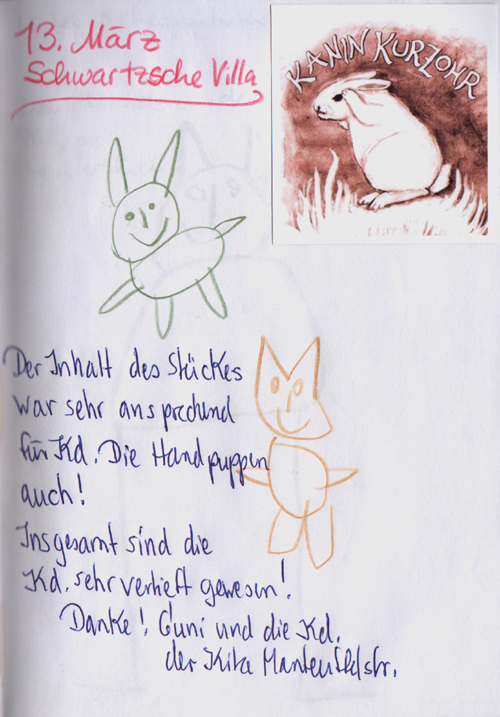 13. März
Schwartzsche Villa
KANIN KURZOHR
Der Inhalt des Stückes
war sehr ansprechend
für Kd. Die Handpuppen
auch!
Insgesamt sind die
Kd. sehr vertieft gewesen!
Danke! Guni und die Kd.
der Kita Manteufelstr.